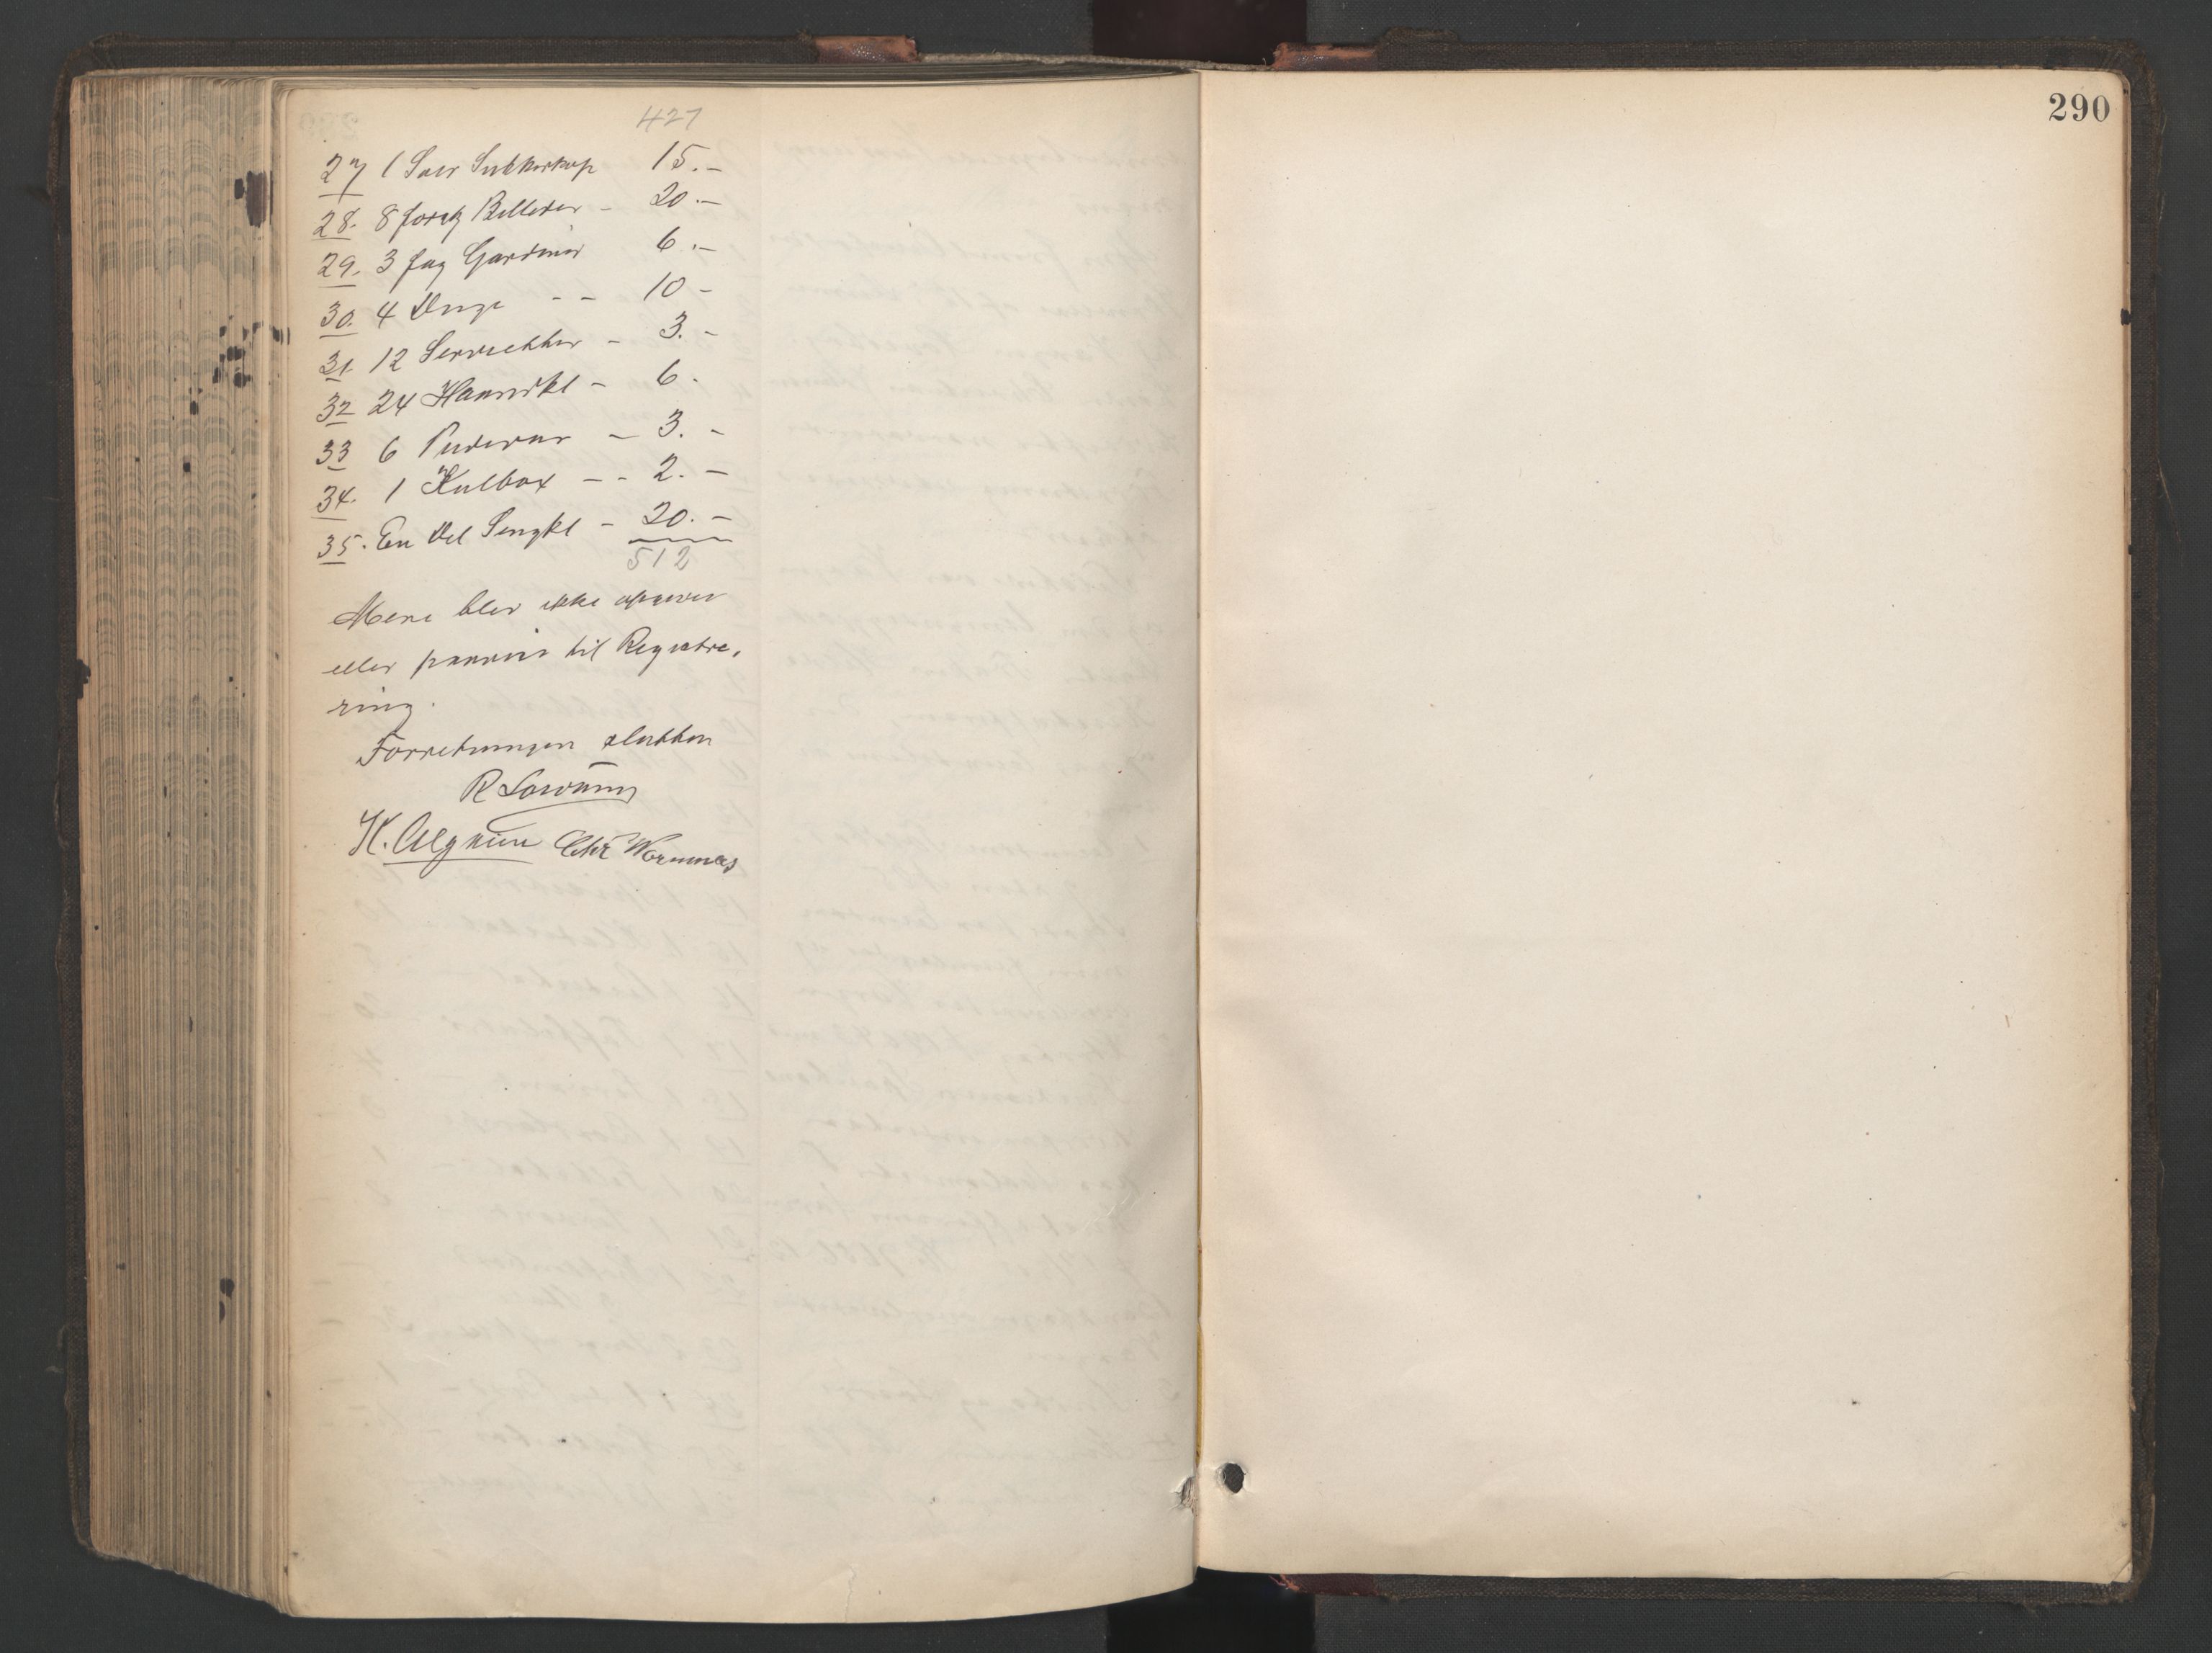 427
27 1 Sukkerkop 15.-
28. 8 forskj Billeder - 20.-
29. 3 fag Gardiner 6.-
30. 4 Duge - - 10 -
31. 12 Servietter - 3. -
32 24 Haandkl - 6.
33 6 Pudevar - 3. -
34. 1 Kulbox - - 2. -
35. En Del Sengkl - 20. -
512
Mere blev ikke opgivet
eller paavist til Registre,
ring.
Forretningen sluttet
R
H. Chr
290